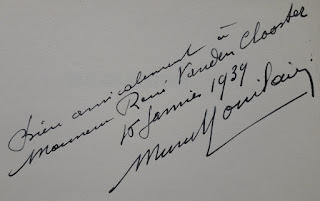 Bien amicalement à
Monsieur René Vanden Clooster
15 Janvier 1939